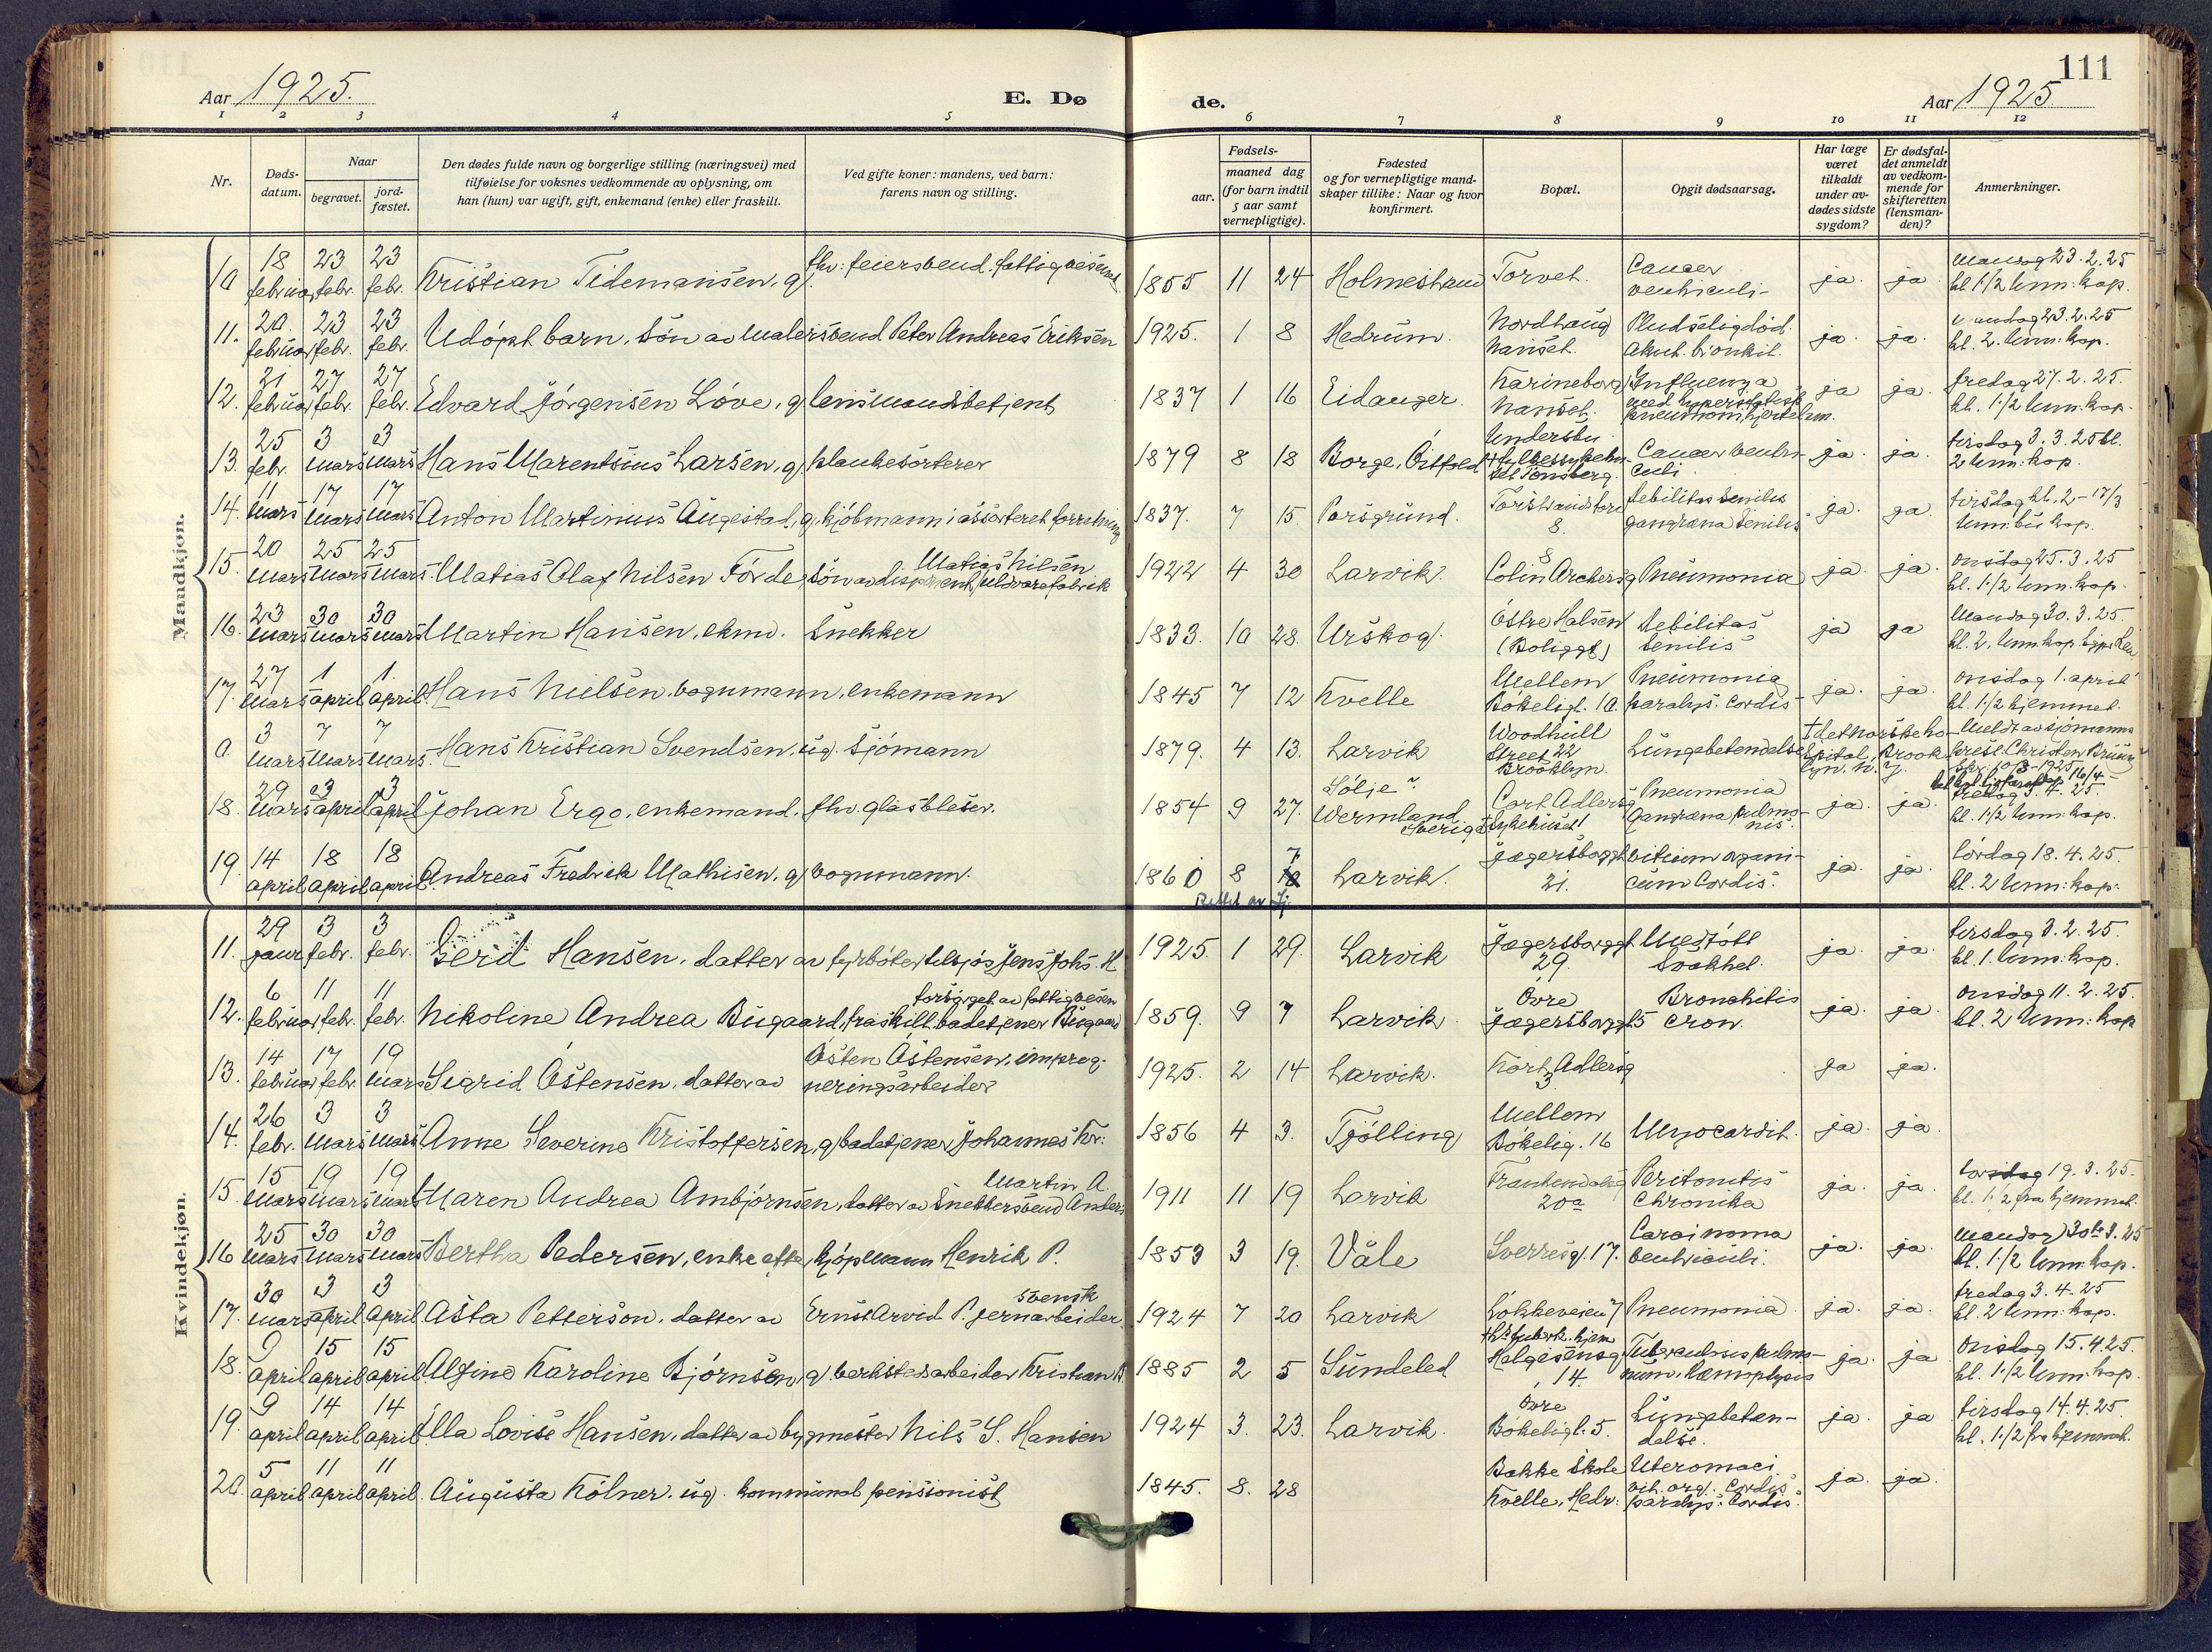 111
Aar 1925.
E. Dø
de.
Aar 1925
1 2 3 4 5 6 7 8 9 10 11 12
Nr.
Døds-
datum.
Naar
begravet.
jord-
fæstet.
Den dødes fulde navn og borgerlige stilling (næringsvei) med
tilføielse for voksnes vedkommende av oplysning, om
han (hun) var ugift, gift, enkemand (enke) eller fraskilt.
Ved gifte koner: mandens, ved barn:
farens navn og stilling.
Fødsels-
aar.
maaned dag
(for barn indtil
5 aar samt
vernepligtige).
Fødested
og for vernepligtige mand-
skaper tillike: Naar og hvor
konfirmert.
Bopæl.
Opgit dødsaarsag.
Har læge
været
tilkaldt
under av-
dødes sidste
sygdom?
Er dødsfal-
det anmeldt
av vedkom-
mende for
skifteretten
(lensman-
den)?
Anmerkninger.
Mandkjøn.
10 18 februar 23 febr. 23 febr. Kristian Tidemansen, g. fhv: feiersvend. 1855 11 24 Holmestrand Torvet. Cancer ventriculi - ja. ja mandag 23.2.25 kl 1 1/2 Unn: kap.
11. 20. februar 23 febr. 23 febr. Udøpt barn, søn av malersvend Peter Andreas Eriksen 1925. 1 8 Hedrum. Nordhaug Nanset. Pludselig død. akut. bronkit. ja. ja. mandag 23.2.25 kl. 2. Unn: kap.
12. 21 februar 27 febr. 27 febr. Edvard Jørgensen Løve, g. lensmandsbetjent 1837 1 16 Eidanger Karineborg Nanset. Influenza med hyperstatisk pneumoni, ja ja. fredag 27.2.25. kl. 1 1/2 Unn: kap.
13. 25 febr. 3 mars 3 mars Hans Marentsius Larsen, g. plankesorterer 1879 8 18 Borge, Østfold Undersbu Tønsberg. Cancer ventriculi ja. ja. tirsdag 3.3.25 kl. 2 Unn: kap.
14. 11 mars 17 mars 17 mars Anton Martinius Augestad, g. kjøbmann i assorteret forretning 1837. 7 15 Porsgrund. 8. debilitas senilis gangræna senilis ja. ja. tirsdag kl. 2 - 17/3 kap.
15. 20 mars 25 mars 25 mars. Matias Olaf Nilsen Førde, søn av Matias Nilsen uldvarefabrik 1922 4 30 Larvik. Colin Archersg 8 Pneumonia ja. ja. onsdag 25.3.25 kl. 1 1/2 Unn: kap.
16. 23 mars 30 mars 30 mars Martin Hansen, ekm. snekker 1833. 10 28. Urskog. Østre Halsen (Boliggt) debilitas senilis ja ja Mandag 30.3.25. kl. 2. Unn. kap.
17. 27 mars 1 april 1. april. Hans Nielsen, vognmann, enkemann 1845 7 12 Kvelle Mellem Bøkeligt. 10. Pneumonia paralys: cordis ja. ja. onsdag 1. april kl. 1 1/2 hjemmet.
0. 3 mars 7 mars 7 mars. Hans Kristian Svendsen. ug. sjømann 1879. 4 13. Larvik Woodhull Street 22 Brooklyn. Lungebetendelse † det norske hospital, Brooklyn. N. Y. Meldt av sjømannsprest Christen Bruun
18. 29 mars 3 april 3 april Johan Ergo, enkemand. fhv. glasbleser. 1854 9 27. Sølje Wermland Sverige Cort Adlersg sykehuset Pneumonia gangræna pulmonis. ja. ja. fredag 3.4.25. kl. 1 1/2 Unn: kap.
19. 14 april 18 april 18 april. Andreas Fredrik Mathisen, g. vognmann. 1860 8 7 Larvik. Jægersborggt 21. vitium organicum cordis. ja. ja. lørdag 18.4.25. kl. 2 Unn: kap.
Rettet av Sj.
Kvindekjøn.
11. 29 januar 3 febr. 3 febr. Gerd Hansen, datter av fyrbøter tilsjøs Jens Johs. H 1925. 1 29. Larvik Jægersborggt. 29. Medfødt svakhet. ja. ja. tirsdag 3.2.25. kl. 1. Unn: kap.
12. 6 februar 11 febr. 11 febr. Nikoline Andrea Bugaard, fraskill. badetjener Bugaard forsørget av fattigvesen 1859. 9 7 Larvik Øvre Jægersborggt 5 Bronchitis cron. ja. ja. onsdag 11.2.25. kl. 2 Unn: kap
13. 14 februar 17 febr. 19 mars Sigrid Østensen, datter av Østen Østensen, impregneringsarbeider 1925. 2 14 Larvik. Kort Adlersg 3. ja ja.
14. 26 febr. 3 mars 3 mars Anne Severine Kristoffersen, g. badetjener Johannes Kr: 1856 4 3. Tjølling Mellem Bøkelig. 16 Myocardit. ja. ja.
15. 15 mars 19 mars 19 mars Maren Andrea Ambjørnsen, datter av snekkersvend Martin A. 1911 11 19 Larvik 20a Peritonitis chronika ja. ja. torsdag 19.3.25. kl. 1 1/2 fra hjemmet.
16 25 mars 30 mars 30 mars Bertha Pedersen, enke efter kjøpmann Henrik P. 1853 3 19. Våle Sverresg. 17. Carcinoma ventriculi. ja. ja. mandag 30te 3. 25 kl. 1 1/2 Unn: kap.
17. 30 mars 3 april 3 april Asta Petterson, datter av Ernst Arvid P. jernarbeider. svensk 1924 7 20 Larvik Løkkeveien 7 Pneumonia. ja. ja. fredag 3.4.25 kl. 2 Unn: kap.
18. 9 april 15 april 15 april. Alfine Karoline Bjørnsen, g. verkstedsarbeider Kristian B. 1885 2 5 Søndeled Helgesensg 14. Tuberculosis pulmonum. hæmoptysis ja. ja onsdag 15.4.25. kl. 1 1/2 Unn: kap.
19. 9 april 14 april 14 april. Ella Lovise Hansen, datter av bygmester Nils S. Hansen 1924 3. 23. Larvik. Øvre Bøkeligt. 5. Lungebetændelse. ja. ja tirsdag 14.4.25. kl. 1 1/2 fra hjemmet.
20. 5 april 11 april 11 april. Augusta Kølner. ug. kommunal pensionist 1845. 8. 28 Bakke Skole Kvelle, Hedr: vit. org. cordis paralys: cordis. ja. ja.